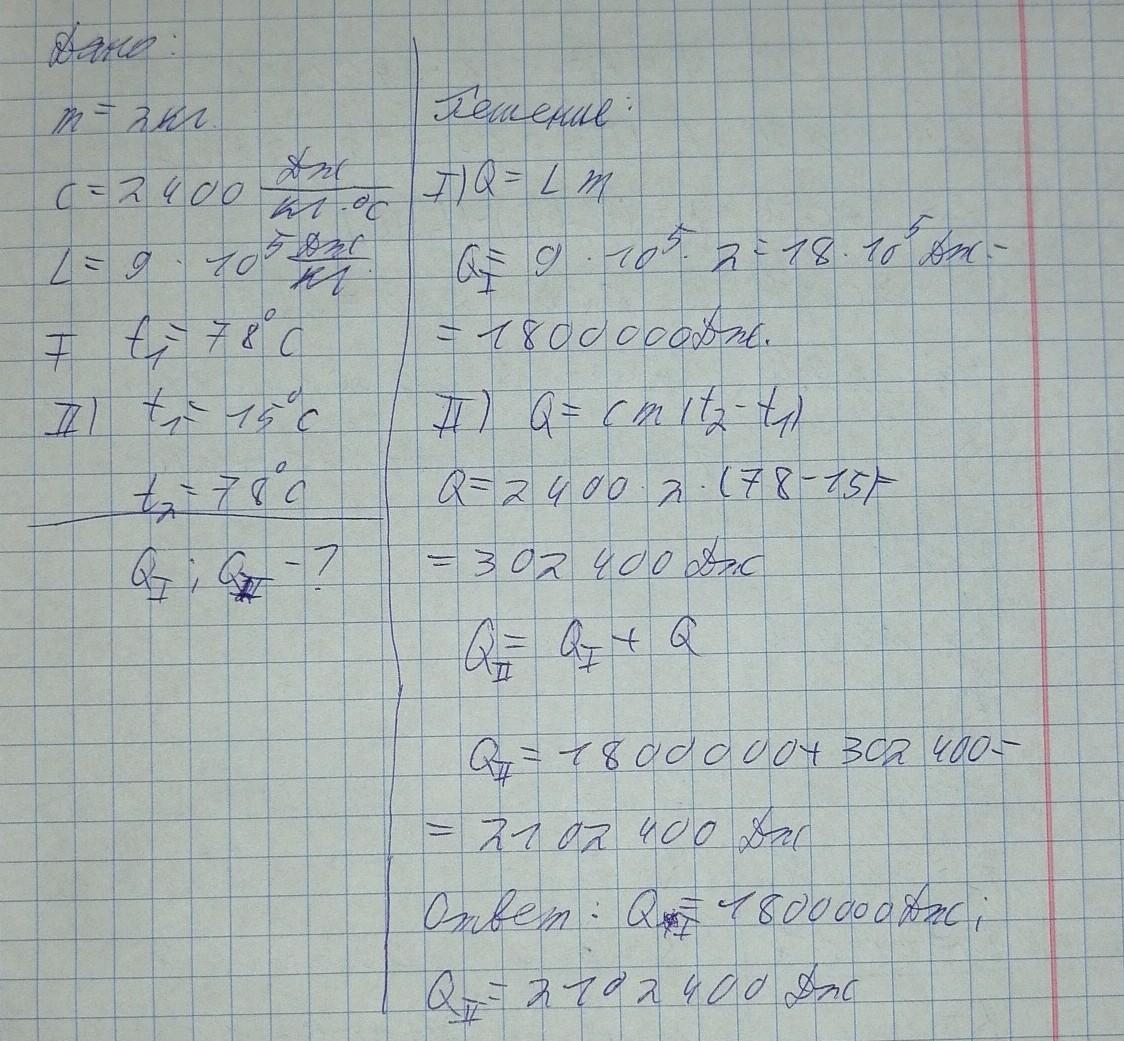 Дано:
m = 2 кг.
c = 2400 Дж/кг·°C
L = 9 · 10⁵ Дж/кг
I t₁ = 78°C
II) t₁ = 15°C
t₂ = 78°C
Q_I ; Q_II - ?
Решение:
I) Q = L m
Q_I = 9 · 10⁵ · 2 = 18 · 10⁵ Дж. =
= 1800000 Дж.
II) Q = cm(t₂ - t₁)
Q = 2400 · 2 · (78 - 15) =
= 302 400 Дж
Q_II = Q_I + Q
Q_II = 1800000 + 302 400 =
= 2102 400 Дж
Ответ: Q_I = 1800000 Дж;
Q_II = 2102400 Дж